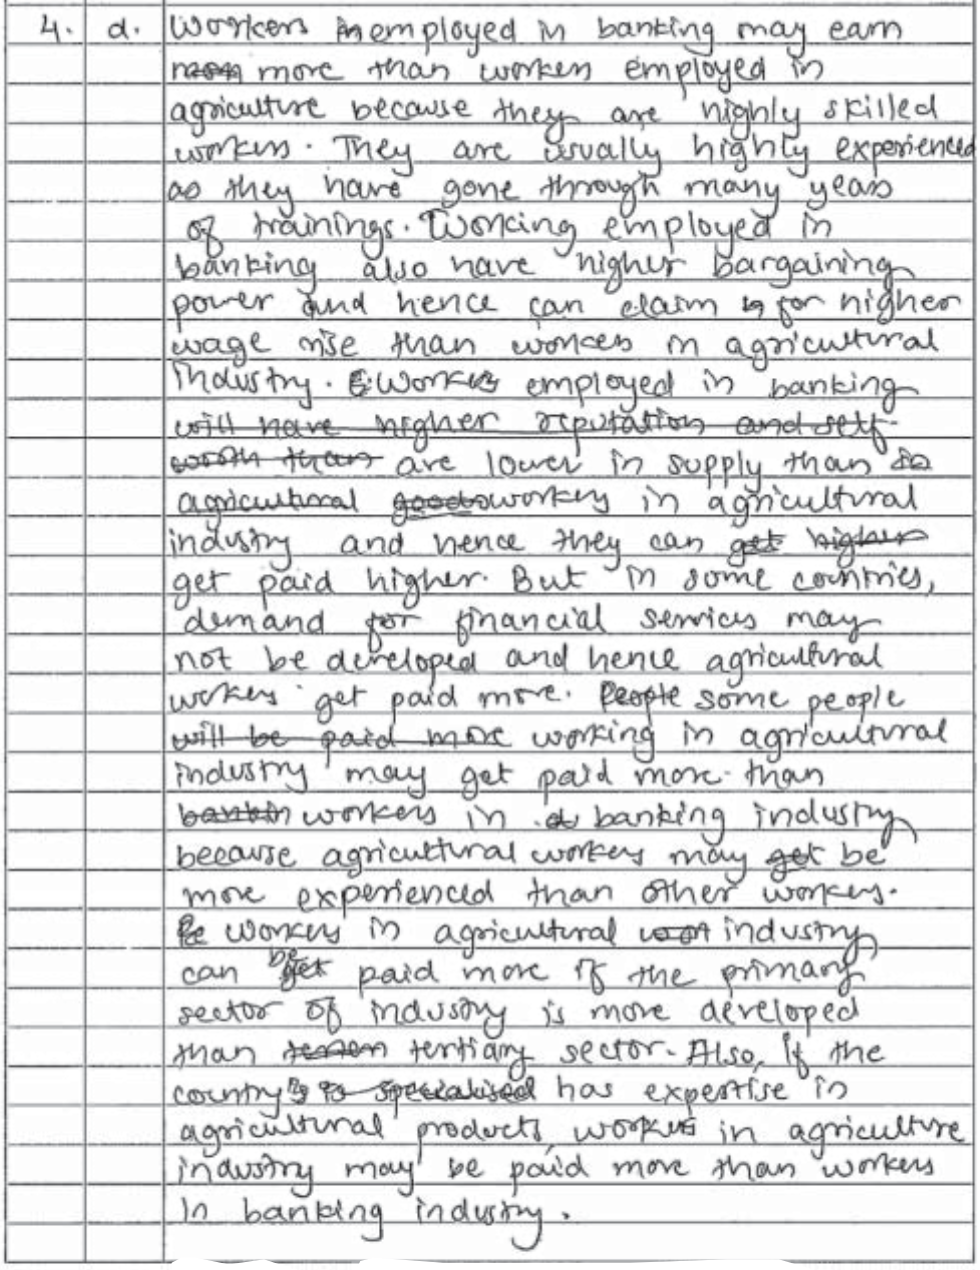 4. d. Workers employed in banking may earn
more than workers employed in
agriculture because they are highly skilled
workers. They are usually highly experienced
as they have gone through many years
of trainings. Working employed in
banking also have higher bargaining
power and hence can claim for higher
wage rise than workers in agricultural
industry. Workers employed in banking
will have higher reputation and self-
worth than are lower in supply than
agricultural goods workers in agricultural
industry and hence they can get higher
get paid higher. But in some countries,
demand for financial services may
not be developed and hence agricultural
wokers get paid more. People some people
will be paid more working in agricultural
industry may get paid more than
workers in banking industry
because agricultural workers may get be
more experienced than other workers.
workers in agricultural industry
can be get paid more if the primary
sector of industry is more developed
than tertiary sector. Also, if the
country is specialised has expertise in
agricultural products, workers in agriculture
industry may be paid more than workers
in banking industry.